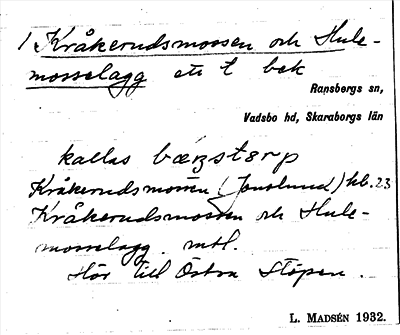 1/ Kråkerudsmossen och Hule-
mosselagg ett t bek
Ransbergs sn,
Vadsbo hd, Skaraborgs län
kallas
Kråkerudsmossen (Jonslund) kb. 23
Kråkerudsmossen och Hule-
mosselagg. mtl.
Hör till Östra Stöpen.
L. MADSÉN 1932.